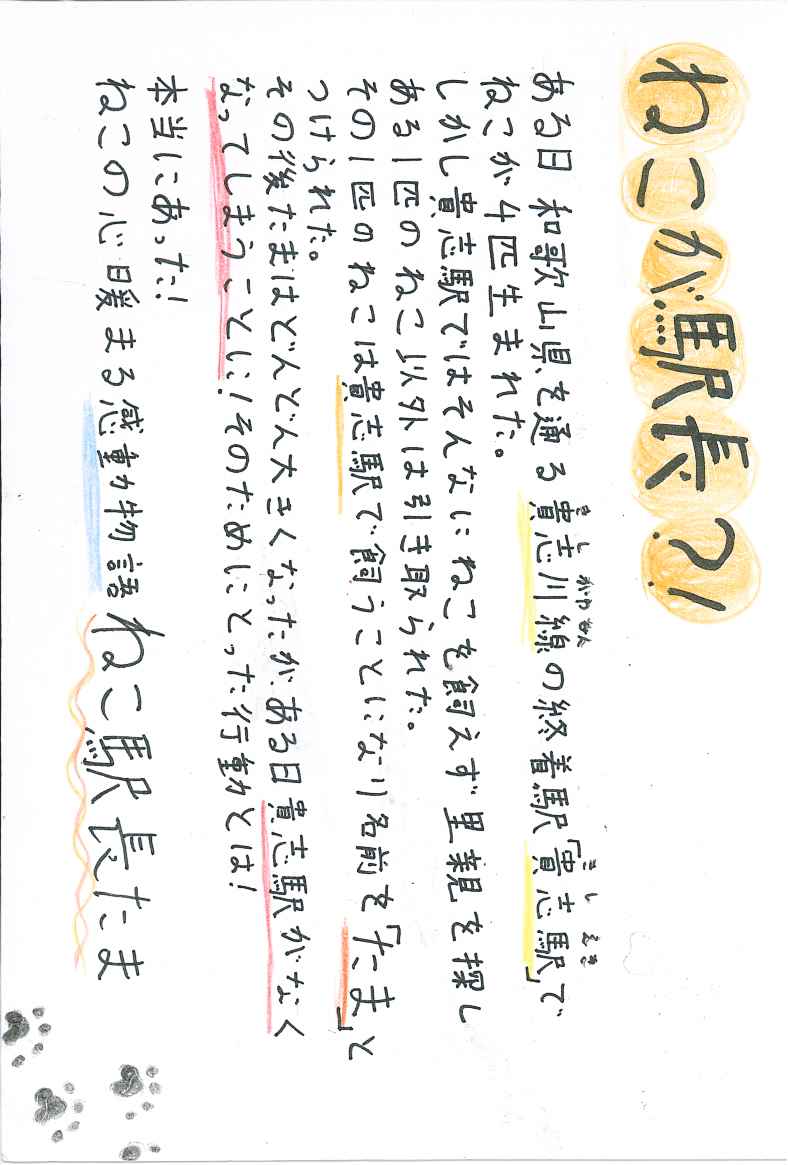 ねこが駅長?!
ある日 和歌山県を通る貴志川線の終着駅「貴志駅」で
きしがわせん
きしえき
ねこが4匹生まれた。
しかし貴志駅ではそんなにねこを飼えず里親を探し
ある1匹のねこ以外は引き取られた。
その1匹のねこは貴志駅で飼うことになり名前を「たま」と
つけられた。
その後たまはどんどん大きくなったが、ある日貴志駅がなく
なってしまうことに!そのためにとった行動とは!
本当にあった!
ねこの心暖まる感動物語 ねこ駅長たま